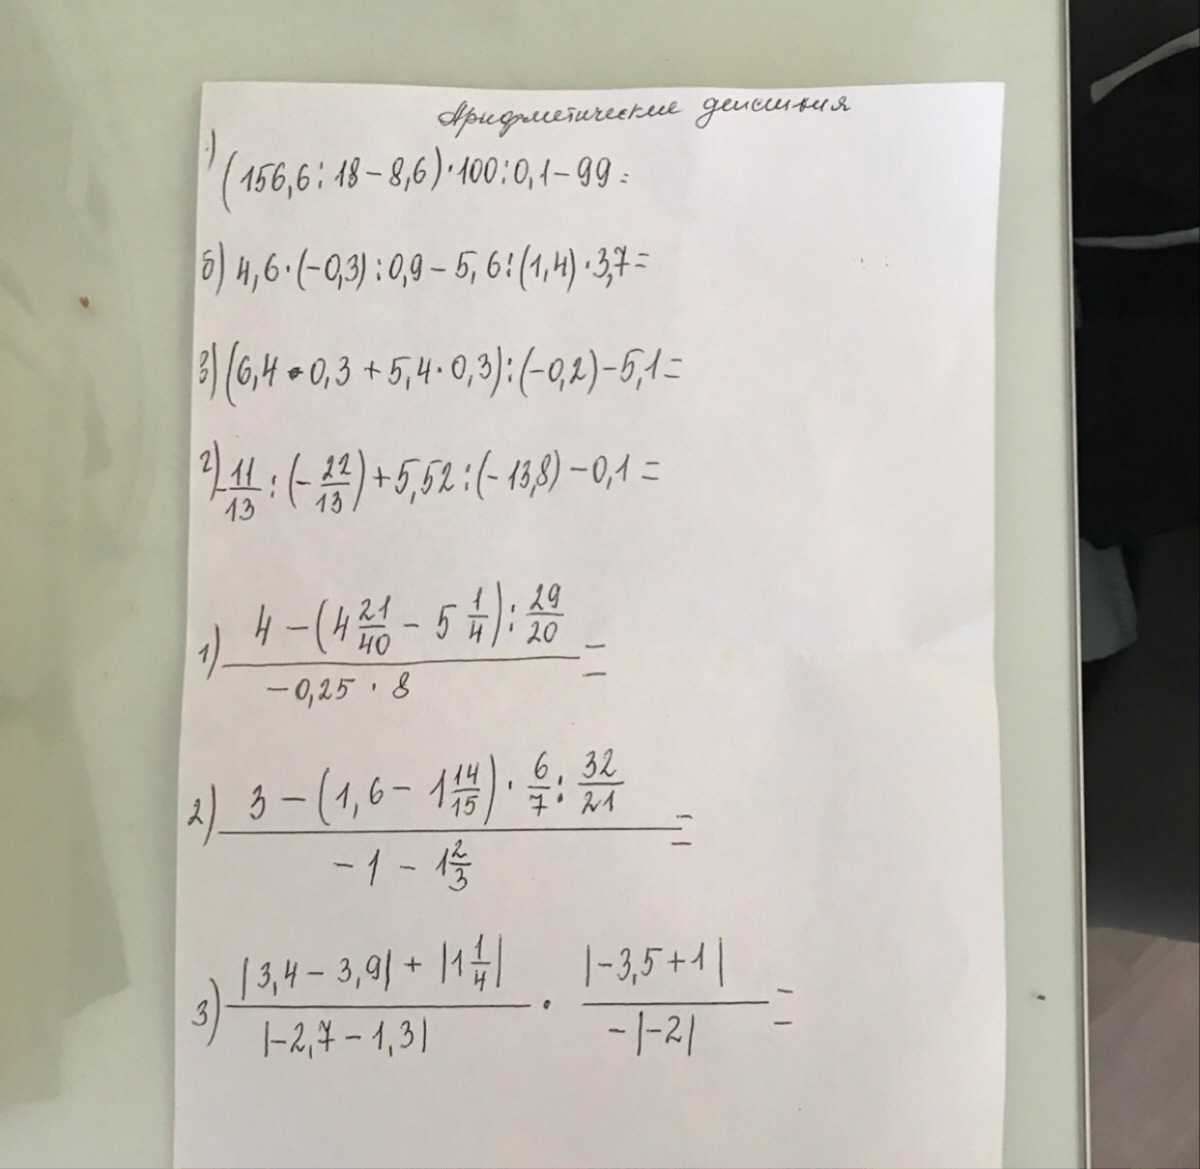 Арифметические действия
1) (156,6 : 18 – 8,6) · 100 : 0,1 – 99 =
б) 4,6 · (–0,3) : 0,9 – 5,6 : (1,4) · 3,7 =
в) (6,4 · 0,3 + 5,4 · 0,3) : (–0,2) – 5,1 =
г) –11/13 : (–22/13) + 5,52 : (–13,8) – 0,1 =
4 – (4 21/40 – 5 1/4) : 29/20
1) =
–0,25 · 8
3 – (1,6 – 1 14/15) · 6/7 : 32/21
2) =
–1 – 1 2/3
|3,4 – 3,9| + |1 1/4| |–3,5 + 1|
3) · =
|–2,7 – 1,3| –|–2|